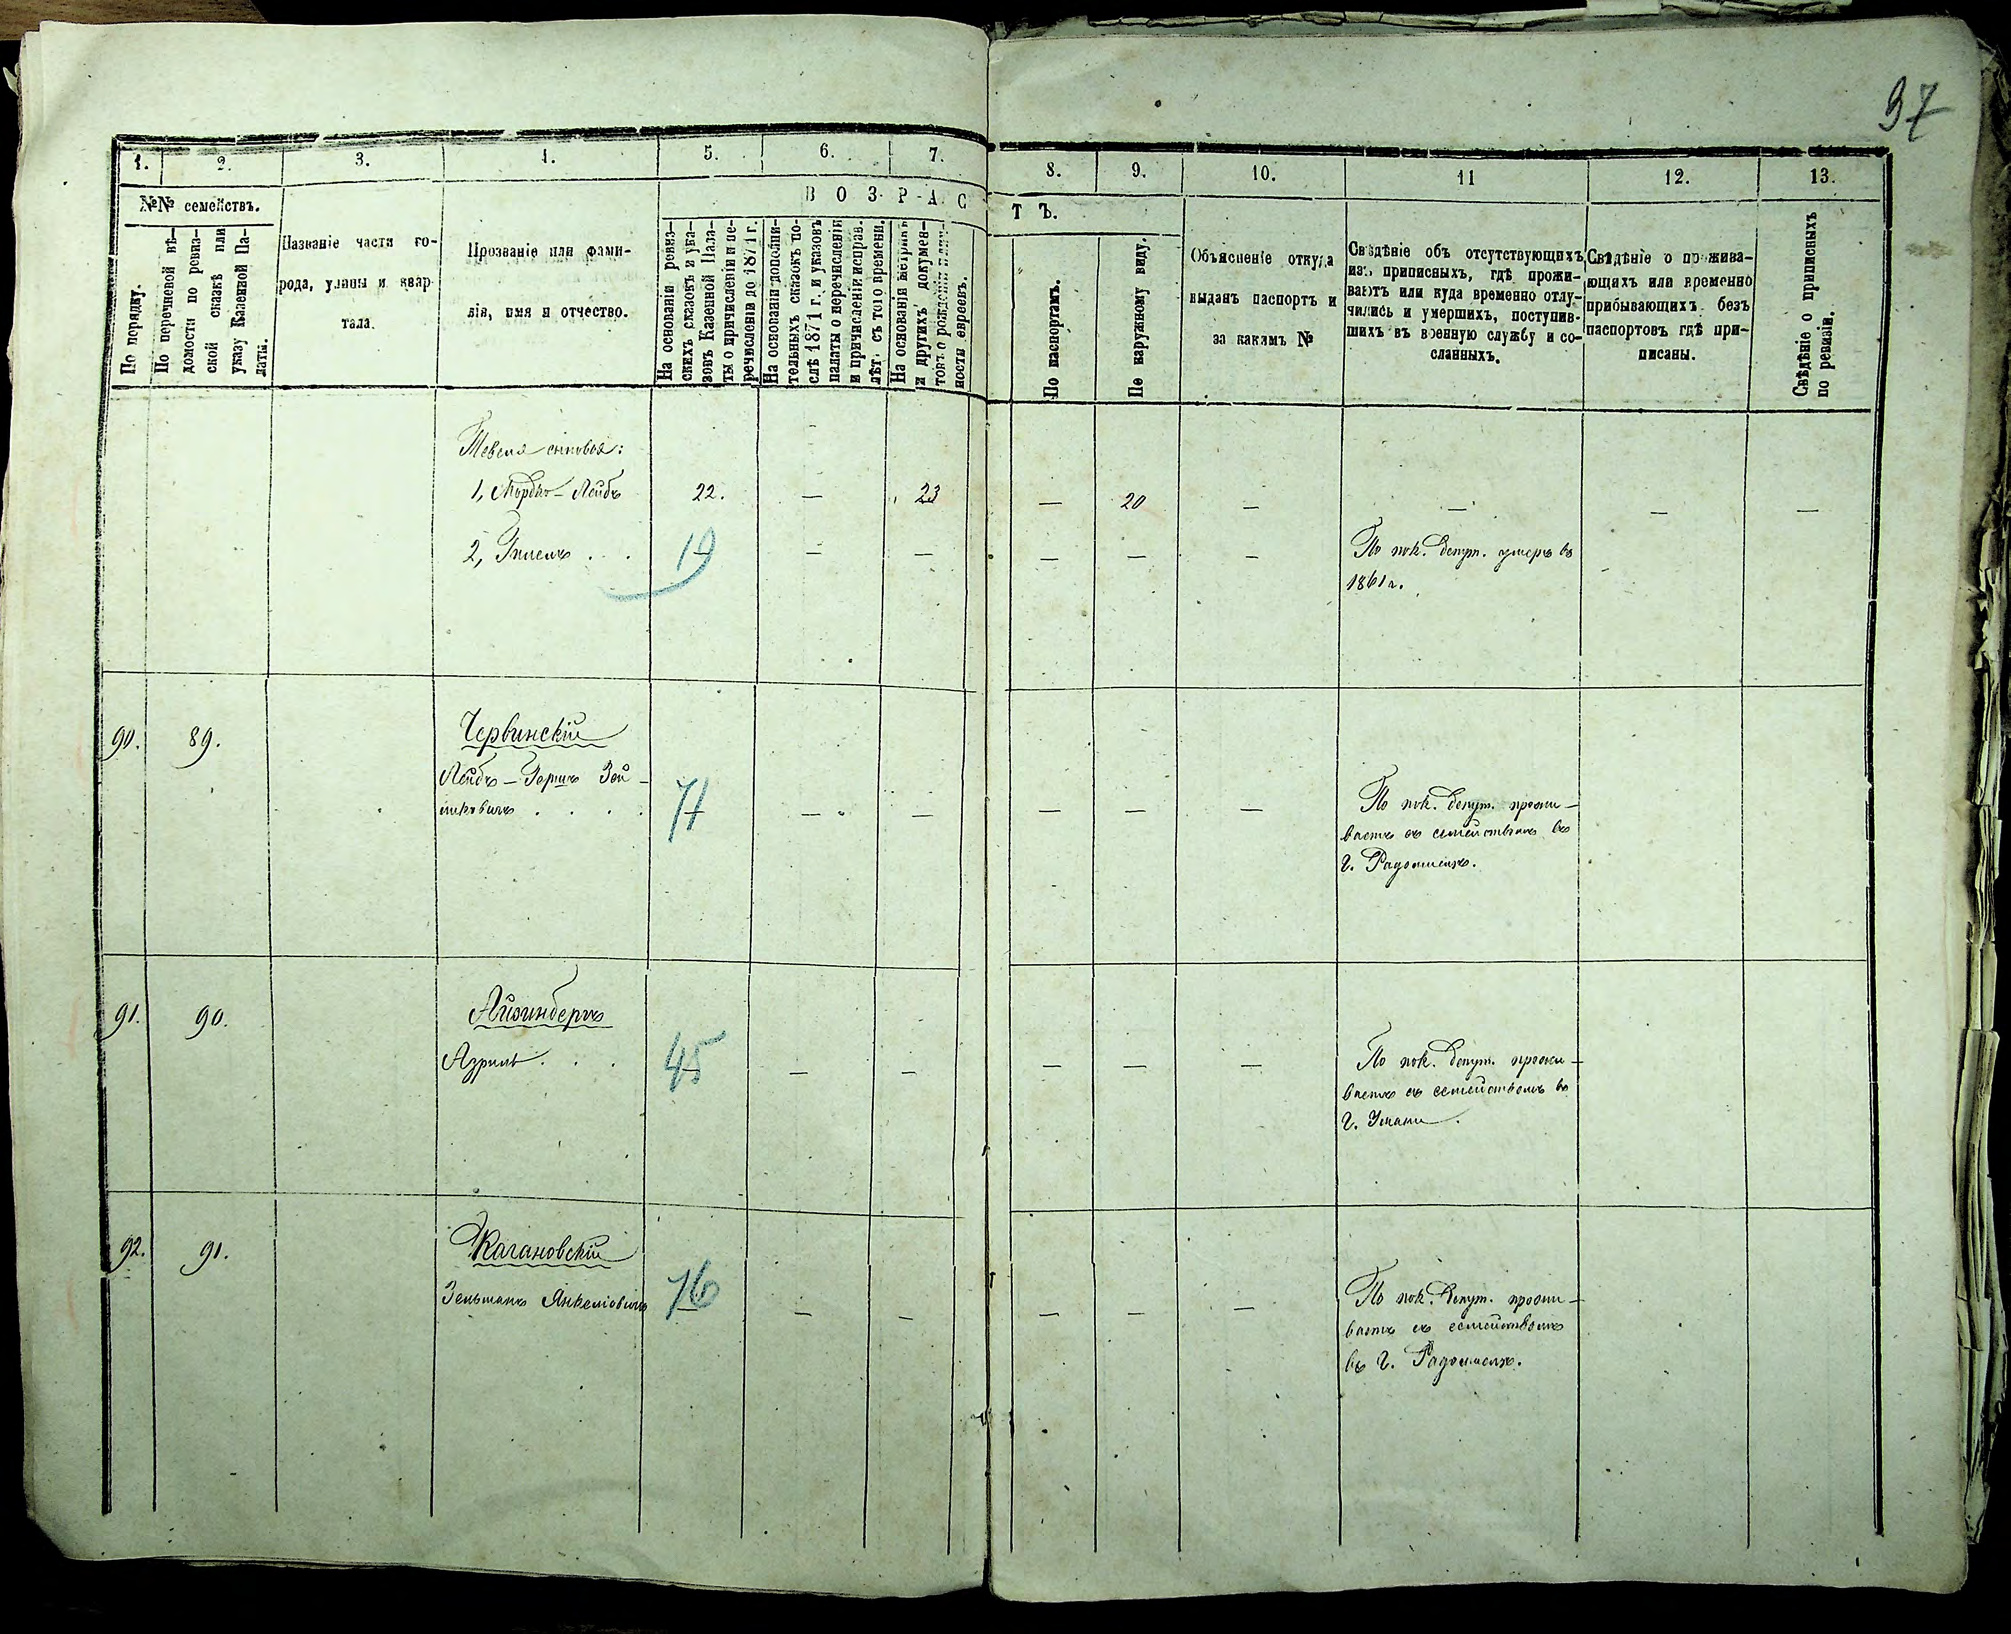 97
1. 2. 3. 4. 5. 6. 7. 8. 9. 10. 11 12. 13.
№№ семействъ.
ВОЗРАСТЪ.
По порядку.
По перечневой вѣ-
домости по ревиз-
ской сказкѣ или
указу Казенной Па-
латы.
Названіе части го-
рода, улицы и квар-
тала.
Прозваніе или фами-
лія, имя и отчество.
На основаніи ревиз-
скихъ сказокъ и ука-
зовъ Казенной Пала-
ты о причисленіи и пе-
речисленіи до 1871 г.
На основаніи дополни-
тельныхъ сказокъ по-
слѣ 1871 г. и указовъ
палаты о перечисленіи
и причисленіи исправ.
лѣт. съ того времени.
На основаніи метрикъ
и другихъ докумен-
товъ о рожденіи
ности евреевъ.
По паспортамъ.
По наружному виду.
Объясненіе откуда
выданъ паспортъ и
за какимъ №
Свѣдѣніе объ отсутствующихъ
изъ приписныхъ, гдѣ прожи-
ваютъ или куда временно отлу-
чились и умершихъ, поступив-
шихъ въ военную службу и со-
сланныхъ.
Свѣдѣніе о прожива-
ющихъ или временно
прибывающихъ безъ
паспортовъ гдѣ при-
писаны.
Свѣдѣніе о приписныхъ
по ревизіи.
Тевеля сыновья:
1, Мордко-Лейбъ 22. — 23 — 20 — — — —
2, — — — — — По пок. депут. умеръ въ
19
1861 г.
90. 89. Червинскій
Лейбъ-Гершъ Зей-
71 — — — — — По пок. депут. прожи-
ваетъ съ семействомъ въ
г. Радомыслѣ.
91. 90. Айзинбергъ
Азриль . . . 45 — — — — — По пок. депут. прожи-
ваетъ съ семействомъ въ
г. Умани.
92. 91. Кагановскій
Зельманъ Янкеліовичъ 76 — — — — — По пок. депут. прожи-
ваетъ съ семействомъ
въ г. Радомыслѣ.